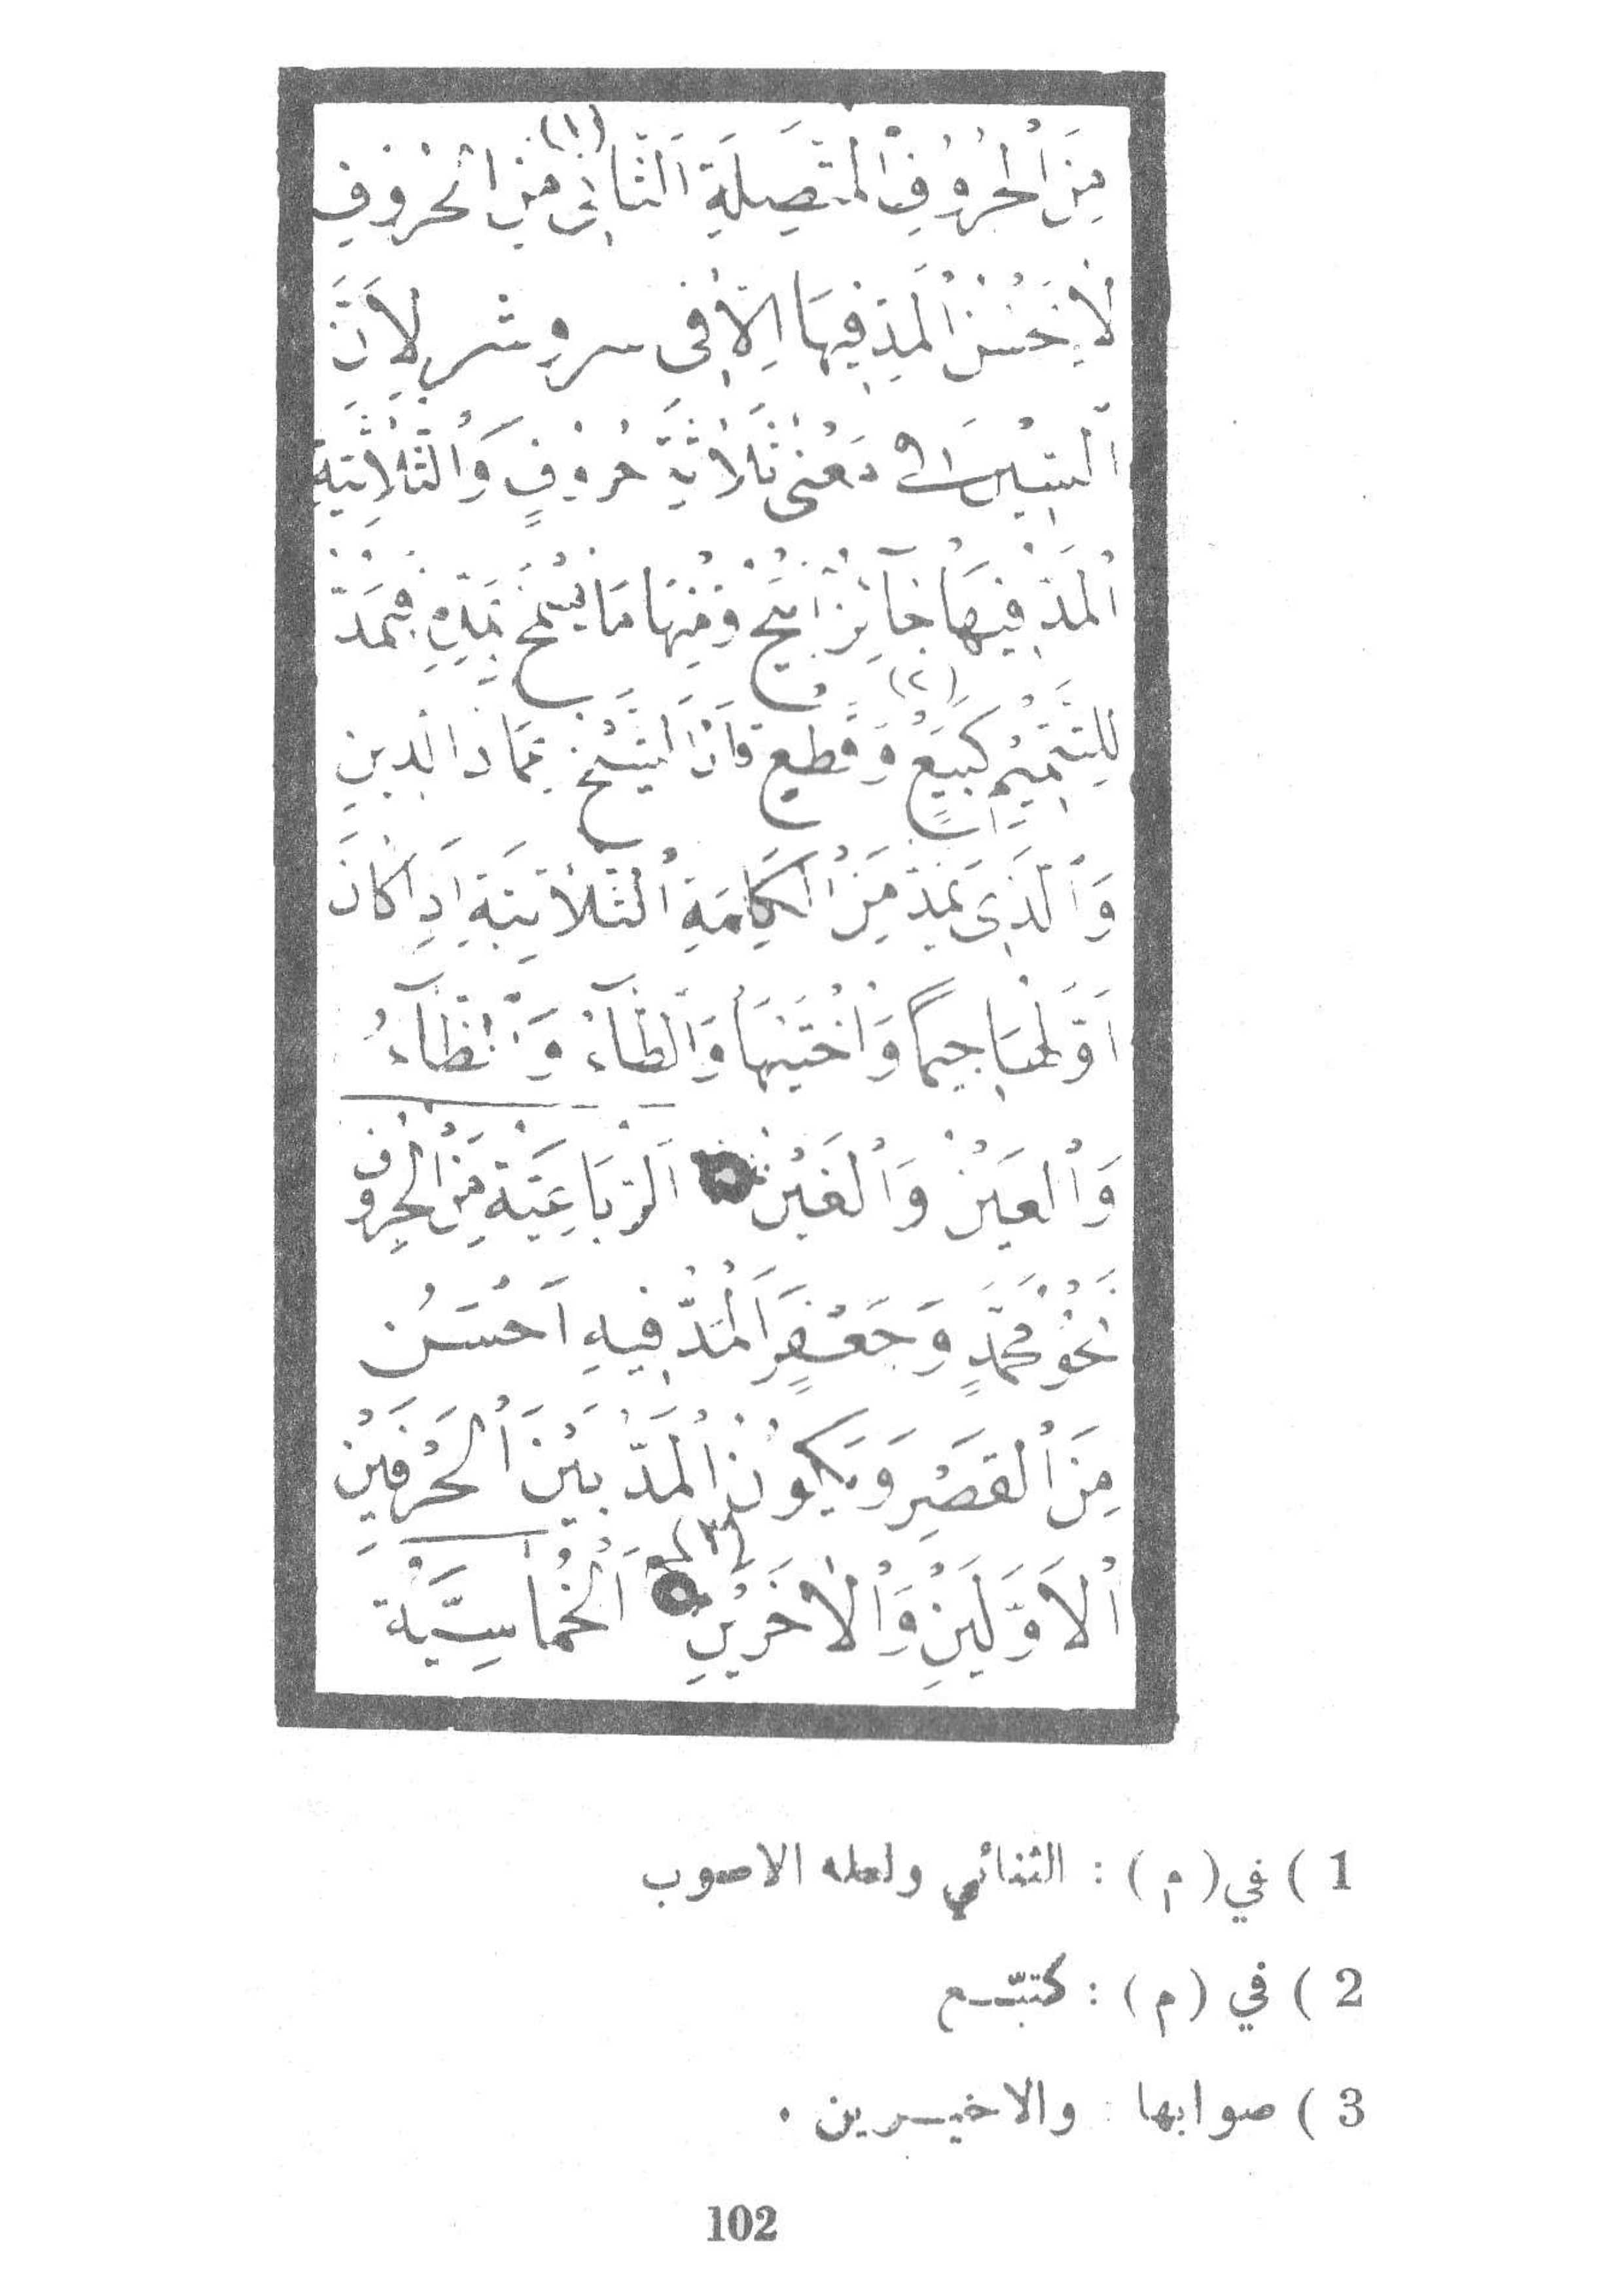 مِنَ الْحُرُوفِ الْمُتَّصِلَةِ اَلثَّانِى (١) مِنَ الْحُرُوفِ
لَا يَحْسُنُ الْمَدُّ فِيهَا اِلَّا فِى سر وشر لِاَنَّ
اَلسِّيْنَ فى مَعْنَى ثَلَاثَةِ حُرُوفٍ وَالثُّلَاثِيَّةِ
اَلْمَدُّ فِيهَا جَآئِزٌ وَمِنْهَا مَا يَسْمُجُ بِمَدِّهِ فَيُمَدُّ
لِلتَّتْمِيْمِ كَبَيْعٍ (٢) وَقَطْعٍ قَالَ الشَّيْخُ عِمَادُ الدِّينِ
وَالَّذِى يُمَدُّ مِنَ الْكَلِمَةِ الثُّلَاثِيَّةِ اِذَا كَانَ
اَوَّلُهَا جِيمًا وَاُخْتَيْهَا وَالطَّآءُ وَالظَّآءُ
وَالْعَيْنُ وَالْغَيْنُ اَلرُّبَاعِيَّةُ مِنَ الْحُرُوفِ
نَحْوُ مُحَمَّدٍ وَجَعْفَرٍ اَلْمَدُّ فِيهِ اَحْسَنُ
مِنَ الْقَصْرِ وَيَكُونُ الْمَدُّ بَيْنَ الْحَرْفَيْنِ
الْاَوَّلَيْنِ وَالْاٰخَرَيْنِ (٣) اَلْخُمَاسِيَّةُ
1 ) في ( م ) : الثنائي ولعله الاصوب
2 ) في ( م ) : كتبّع
3 ) صوابها : والاخيرين .
102